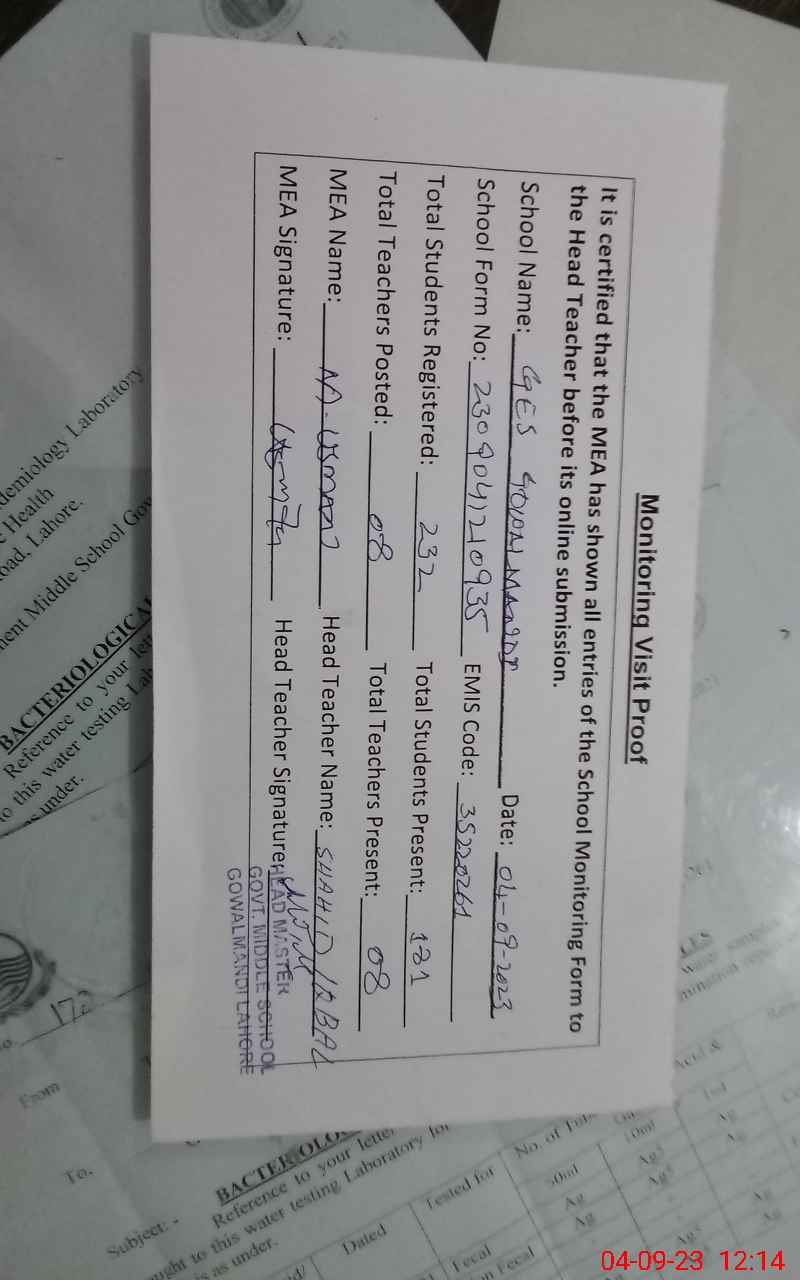 Monitoring Visit Proof
It is certified that the MEA has shown all entries of the School Monitoring Form to
the Head Teacher before its online submission.
School Name: GES Date: 04-09-2023
School Form No: 2309041210935 EMIS Code: 35220261
Total Students Registered: 232 Total Students Present: 181
Total Teachers Posted: 08 Total Teachers Present: 08
MEA Name: M. Usman Head Teacher Name: SHAHID IQBAL
MEA Signature: Head Teacher Signature:
HEAD MASTER
GOVT. MIDDLE SCHOOL
GOWALMANDI LAHORE
demiology Laboratory
Health
oad, Lahore.
nent Middle School Gov
BACTERIOLOGICA
Reference to your lette
o this water testing Lab
s under.
172
From
To.
Subject: -
BACTERIOLO
Reference to your letter
ught to this water testing Laboratory for
is as under.
Dated
Tested for
No. of
50ml
10ml
Fecal
Fecal
Ag
Ag
Acid &
04-09-23 12:14